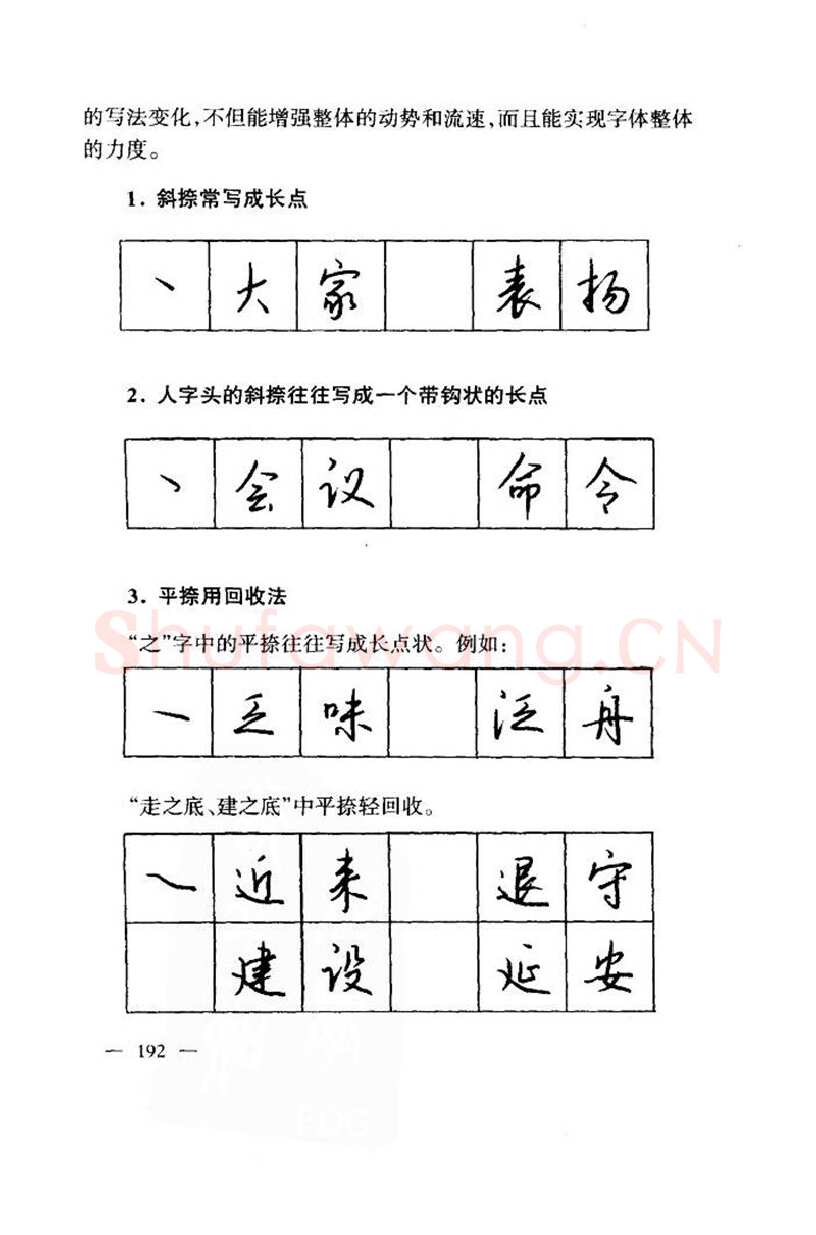 的写法变化,不但能增强整体的动势和流速,而且能实现字体整体
的力度。
1. 斜捺常写成长点
丶 大 家 表 扬
2. 人字头的斜捺往往写成一个带钩状的长点
丶 会 议 命 令
3. 平捺用回收法
“之”字中的平捺往往写成长点状。例如:
乏 味 泛 舟
“走之底、建之底”中平捺轻回收。
近 来 退 守
建 设 延 安
— 192 —
Shufawang.CN
PDG